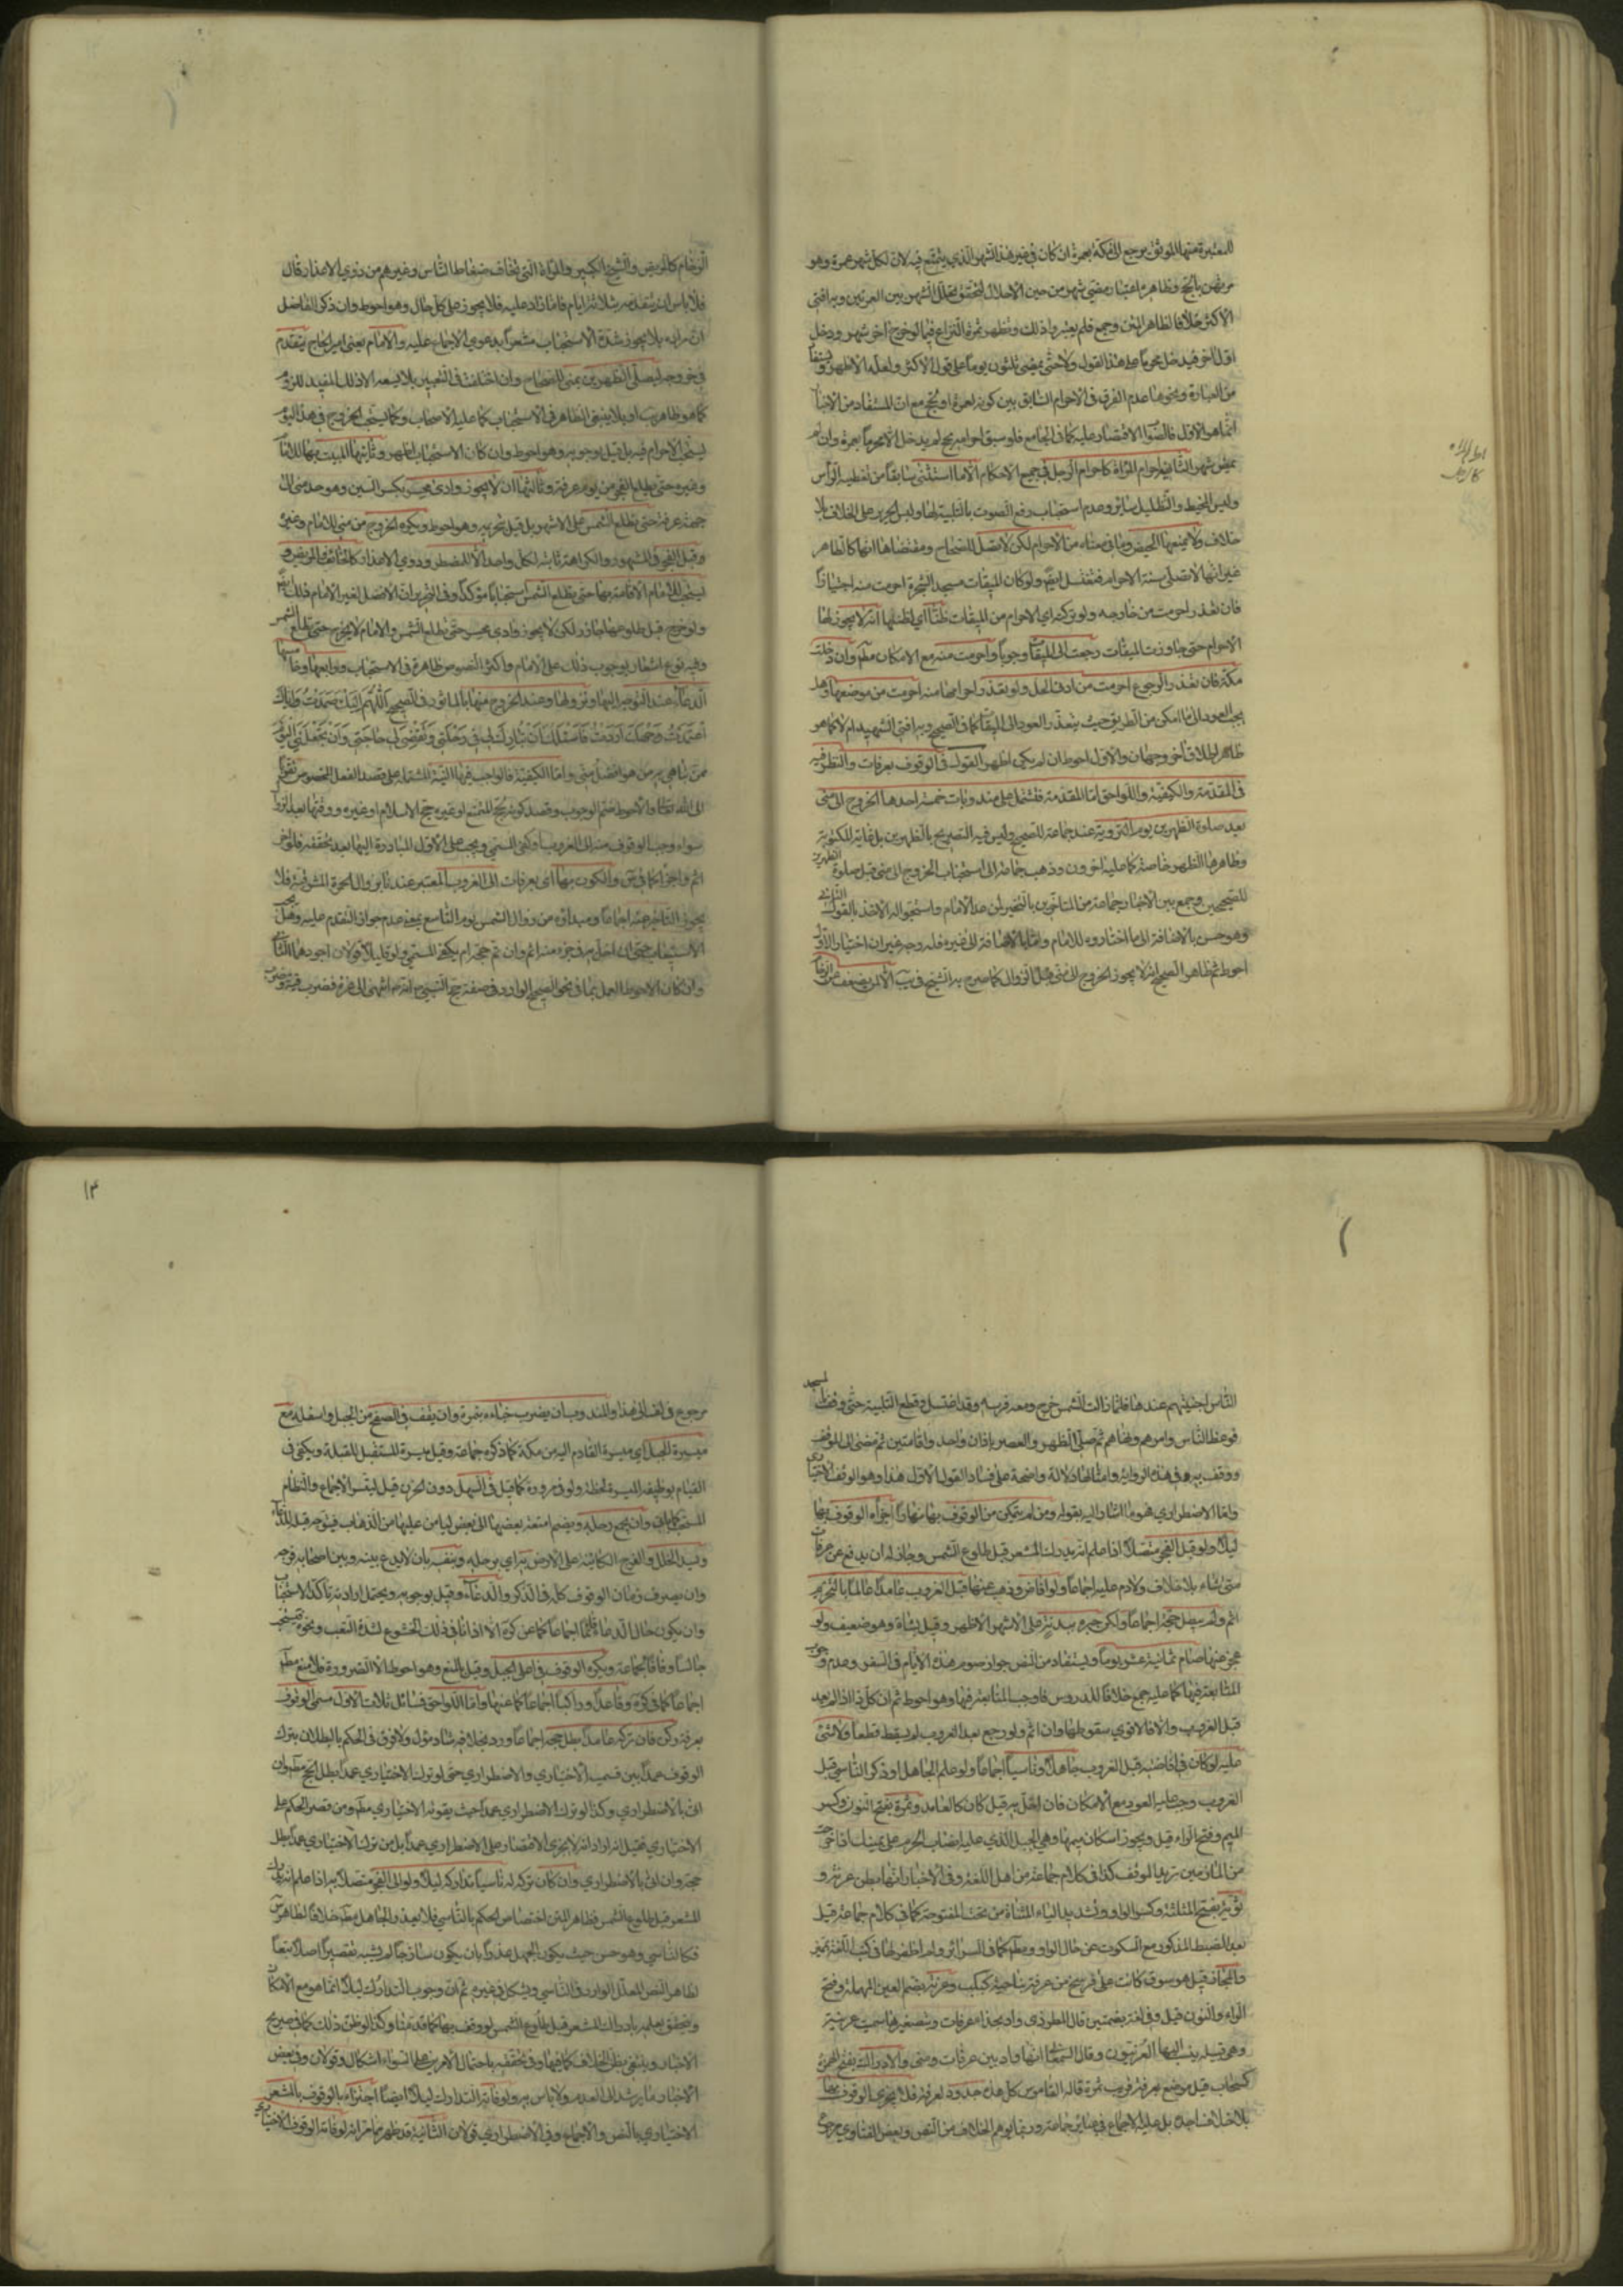 للمعتبرة منها الموثق يرجع الى مكة بعمرة ان كان في غير هذا الشهر الذي يتمتع فيه لان لكل شهر عمرة وهو
مرتهن بالحج وظاهره اعتبار مضي شهر من حين الاحلال ليتحقق تخلل الشهر بين العمرتين وبه افتى
الاكثر خلافا لظاهر المتن وجمع فلم يعتبروا ذلك وتظهر ثمرة النزاع فيما لو خرج اخر شهر ودخل
اول اخر فيدخل محرما على هذا القول ولا حتى يمضي ثلثون يوما على قول الاكثر ولعله الاظهر ويستفاد
من العبارة ونحوها عدم الفرق في الاحرام السابق بين كونه لعمرة او لحج مع ان المستفاد من الاخبار
انما هو الاول فالصواب الاقتصار عليه كما في الجامع فلو سبق احرامه بحج لم يدخل الا محرما بعمرة وان لم
يمض شهر الثانية احرام المراة كاحرام الرجل في جميع الاحكام الا ما استثنى سابقا من تغطية الرأس
ولبس المخيط والتظليل سائرا وعدم استحباب رفع الصوت بالتلبية لها ولبس الحرير على الخلاف بلا
خلاف ولا يمنعها الحيض وما في معناه من الاحرام لكن لا تصل للصحاح ومقتضاها انها كالطاهر
غير انها لا تصلي سنة الاحرام فتغتسل ايضا ولو كان الميقات مسجد الشجرة احرمت منه اجتيازا
فان تعذر احرمت من خارجه ولو تركته اي الاحرام من الميقات ظنا اي لظنها انه لا يجوز لها
الاحرام حتى جاوزت الميقات رجعت الى الميقات وجوبا واحرمت منه مع الامكان مطلقا وان دخلت
مكة فان تعذر الرجوع احرمت من ادنى الحل ولو تعذر احرامها منه احرمت من موضعها وهل
يجب العود الى ما امكن من الطريق حيث يتعذر العود الى الميقات كما في الصحيح وبه افتى الشهيد ام لا كما هو
ظاهر اطلاق اخر وجهان والاول احوط ان لم يكن اظهر القول في الوقوف بعرفات والنظر فيه
في المقدمة والكيفية واللواحق اما المقدمة فتشتمل على مندوبات خمسة احدها الخروج الى منى
بعد صلوة الظهرين يوم التروية عند جماعة للصحيح وليس فيه التصريح بالظهرين بل غايته المكتوبة
وظاهرها الظهر خاصة كما عليه اخرون وذهب جماعة الى استحباب الخروج الى منى قبل صلوة الظهرين
للصحيحين وجمع بين الاخبار جماعة من المتاخرين بالتخيير لمن عدا الامام واستجوا له الاخذ بالقول الثاني
وهو حسن بالاضافة الى ما اختاروه للامام واما بالاضافة الى غيره فله وجه غير ان اختيار الاول
احوط ثم ظاهر الصحيح انه لا يجوز الخروج الى منى قبل الزوال كما صرح به الشيخ في يب الا لمن يضعف عن الزحام
الزحام كالمريض والشيخ الكبير والمراة التي تخاف ضغاط الناس وغيرهم من ذوي الاعذار قال
فلا باس ان يتقدمه بثلاثة ايام فاما ما زاد عليه فلا يجوز على كل حال وهو احوط وان ذكر الفاضل
ان مراده بلا يجوز شدة الاستحباب مشعرا بدعوى الاجماع عليه والامام يعني امير الحاج يتقدم
في خروجه ليصلي الظهرين بمنى للصحاح وان اختلفت في التعبير بلا يسعه الا ذلك المفيد للزوم
كما هو ظاهر يب او بلا ينبغي الظاهر في الاستحباب كما عليه الاصحاب وكما يستحب الخروج في هذا اليوم
يستحب الاحرام فيه بل قيل بوجوبه وهو احوط وان كان الاستحباب اظهر وثانيها المبيت بها للامام
وغيره حتى يطلع الفجر من يوم عرفة وثالثها ان لا يجوز وادي محسر بكسر السين وهو حد منى الى
جهة عرفة حتى تطلع الشمس على الاشهر بل قيل بتحريمه وهو احوط ويكره الخروج من منى للامام وغيره
وقبل الفجر في المشهور والكراهة ثابتة لكل واحد الا للمضطر وذوي الاعذار كالخائف والمريض و
يستحب للامام الاقامة بها حتى تطلع الشمس استحبابا مؤكدا وفي التحرير ان الافضل لغير الامام ذلك ايضا
ولو خرج قبل طلوعها جاز لكن لا يجوز وادي محسر حتى تطلع الشمس والامام لا يخرج حتى تطلع الشمس
وفيه نوع اشعار بوجوب ذلك على الامام واكثر النصوص ظاهرة في الاستحباب ورابعها وخامسها
الدعاء عند التوجه اليها ونزولها وعند الخروج منها بالماثور ففي الصحيح اللهم اليك صمدت واياك
اعتمدت ووجهك اردت فاسئلك ان تبارك لي في رحلتي وتقضي لي حاجتي وان تجعلني اليوم
ممن تباهي به من هو افضل مني واما الكيفية فالواجب فيها النية المشتملة على قصد الفعل المخصوص تقربا
الى الله تعالى والاحوط ضم الوجوب وقصد كونه لحج التمتع او غيره حج الاسلام او غيره ووقتها بعد الزوال
سواء وجب الوقوف منه الى الغروب او كفى المسمى ويجب على الاول المبادرة اليها بعد تحققه فلو اخر
اثم واجزأ كما في س والكون بها اي بعرفات الى الغروب المعتبر عندنا بزوال الحمرة المشرقية فلا
يجوز التاخر عنه اجماعا ومبداؤه من زوال الشمس يوم التاسع بمعنى عدم جواز التقدم عليه وهل يجب
الاستيعاب حتى ان اخل به في جزء منه اثم وان تم حجه ام يكفي المسمى ولو قليلا قولان اجودهما الثاني
وان كان الاحوط العمل بما في نحو الصحيح الوارد في صفة حج النبي ص انه ص انتهى الى نمرة فضرب قبته وضرب
الناس اخبيتهم عندها فلما زالت الشمس خرج ومعه قريش وقد اغتسل وقطع التلبية حتى وقف بالمسجد
فوعظ الناس وامرهم ونهاهم ثم صلى الظهر والعصر باذان واحد واقامتين ثم مضى الى الموقف
ووقف به وفي هذه الرواية وامثالها دلالة واضحة على فساد القول الاول هذا وهو الوقف الاختياري
واما الاضطراري هو ما اشار اليه بقوله ومن لم يتمكن من الوقوف بها نهارا اجزأه الوقوف بها
ليلا ولو قبل الفجر متصلا اذا علم انه يدرك المشعر قبل طلوع الشمس وجاز له ان يدفع عن عرفات
متى شاء بلا خلاف ولا دم عليه اجماعا ولو افاض وذهب عنها قبل الغروب عامدا عالما بالتحريم
اثم ولم يبطل حجه اجماعا ولكن جبره ببدنة على الاشهر الاظهر وقيل بشاة وهو ضعيف ولو
عجز عنها صام ثمانية عشر يوما ويستفاد من النص جواز صوم هذه الايام في السفر وعدم وجوب
المتابعة فيها كما عليه جمع خلافا للدروس فاوجب المتابعة فيها وهو احوط ثم ان كل ذا اذا لم يعد
قبل الغروب والا فالاقوى سقوطها وان اثم ولو رجع بعد الغروب لم يسقط قطعا ولا شئ
عليه لو كان في افاضته قبل الغروب جاهلا وناسيا اجماعا ولو علم الجاهل او ذكر الناسي قبل
الغروب وجب عليه العود مع الامكان فان اخل به قيل كان كالعامد ونمرة بفتح النون وكسر
الميم وفتح الراء قيل ويجوز اسكان ميمها وهي الجبل الذي عليه انصاب الحرم على يمينك اذا خرجت
من المازمين تريد الموقف كذا في كلام جماعة من اهل اللغة وفي الاخبار انها بطن عرنة و
ثوية بفتح المثلثة وكسر الواو وتشديد الياء المثناة من تحت المفتوحة كما في كلام جماعة قيل
بعد الضبط المذكور مع السكوت عن حال الواو ومثله كما في السرائر ولم اظفر لها في كتب اللغة بميز
والمجاز قيل هو سوق كانت على فرسخ من عرفة بناحية كبكب وعرنة بضم العين المهملة وفتح
الراء والنون قيل وفي لغة بضمتين قال المطرزي واد بحذاء عرفات وبتصغيرها سميت عرينة
وهي قبيلة ينسب اليها العرنيون وقال السمعاني انها واد بين عرفات ومنى والاراك بفتح الهمزة
كسحاب قيل موضع بعرفة قريب نمرة قاله القاموس كل هذه حدود لعرفة فلا يجزي الوقوف بها
بلا خلاف اجده بل عليه الاجماع في عبائر جماعة وربما يوهم الخلاف من النص وبعض الفتاوى مرجوع
مرجوع في الفساني هذا والمندوب ان يضرب خباءه بنمرة وان يقف في السفح من الجبل واسفله مع
ميسرة الجبل اي ميسرة القادم اليه من مكة كما ذكره جماعة وقيل ميسرة المستقبل للقبلة ويكفي في
القيام بوظيفة الميسرة لحظة ولو في مروره كما قيل في السهل دون الحزن قيل لنقس الاجماع والنظام
المستحب كما ياتي وان يجمع رحله ويضم امتعته بعضها الى بعض ليأمن عليها من الذهاب فيتوجه قبله للدعاء
ويسد الخلل والفرج الكائنة على الارض براي برحله وبنفسه بان لا يدع بينه وبين اصحابه فرجة
وان يصرف زمان الوقوف كله في الذكر والدعاء وقيل بوجوبه ويحتمل ارادته تاكد الاستحباب
وان يكون حال الدعاء قائما اجماعا كما عن كرة الا اذا نافى ذلك الخشوع لشدة التعب ونحوه فيستحب
جالسا وفاقا لجماعة ويكره الوقوف في اعلى الجبل وقيل بالمنع وهو احوط الا لضرورة فلا منع مطلقا
اجماعا كما في كرة وقاعدا وراكبا اجماعا كما عنها واما اللواحق فمسائل ثلاث الاول مسمى الوقوف
بعرفة ركن فان تركه عامدا بطل حجه اجماعا ورد بخلافه شاذ مؤول ولا فرق في الحكم بالبطلان بترك
الوقوف عمدا بين قسميه الاختياري والاضطراري حتى لو ترك الاختياري عمدا بطل الحج مطلقا وان
اتى بالاضطراري وكذا لو ترك الاضطراري عمدا حيث يفوته الاختياري مطلقا ومن قصر الحكم على
الاختياري فقيل انه اراد انه لا يجزي الاقتصار على الاضطراري عمدا بل من ترك الاختياري عمدا بطل
حجه وان اتى بالاضطراري وان كان تركه له ناسيا تداركه ليلا ولو الى الفجر متصلا به اذا علم انه يدرك
المشعر قبل طلوع الشمس فظاهر المتن اختصاص الحكم بالناسي فلا يعذر الجاهل مطلقا خلافا لظاهر س
فكالناسي وهو حسن حيث يكون الجهل عذرا بان يكون ساذجا لم يشبه تقصير اصلا تبعا
لظاهر النص المعلل الوارد في الناسي ويشكل في غيره ثم ان وجوب التدارك ليلا انما هو مع الامكان
ويتحقق بعلمه بادراك المشعر قبل طلوع الشمس لو وقف بها كما قدمنا وكذا لو ظن ذلك كما في صريح
الاخبار وينتفي بظن الخلاف كما فيها وفي تحققه باحتمال الامرين على السواء اشكال وقولان وفي بعض
الاخبار ما يرشد الى العدم ولا باس به ولو فاته التدارك ليلا ايضا اجتزاء بالوقوف بالمشعر
الاختياري بالنص والاجماع وفي الاضطراري قولان الثانية قد ظهر مما مر انه لو فاته الوقوف الاختياري